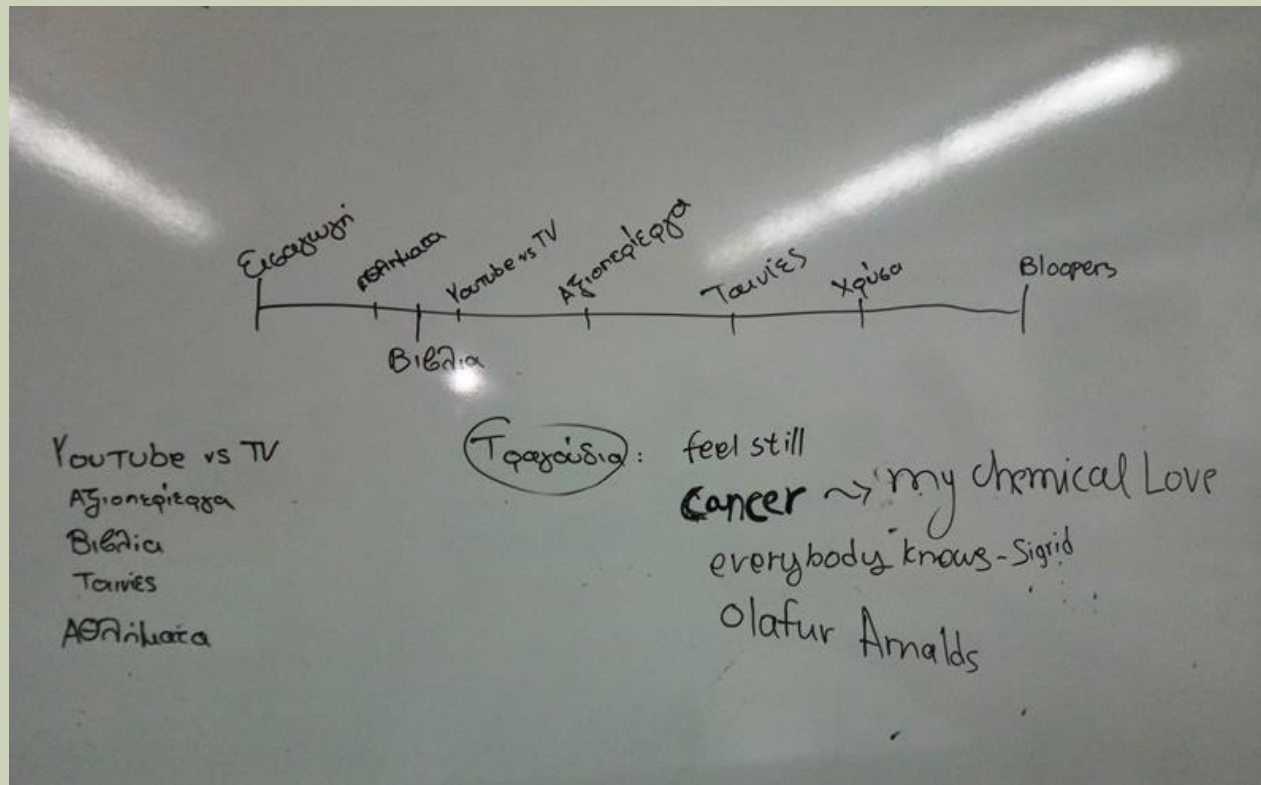 Εισαγωγή
Αθλήματα
Βιβλία
YouTube vs TV
Αξιοπερίεργα
Ταινίες
Χρύσα
Bloopers
YouTube vs TV
Αξιοπερίεργα
Βιβλία
Ταινίες
Αθλήματα
Τραγούδια: feel still
cancer ~> my chemical Love
everybody knows - Sigrid
Olafur Arnalds